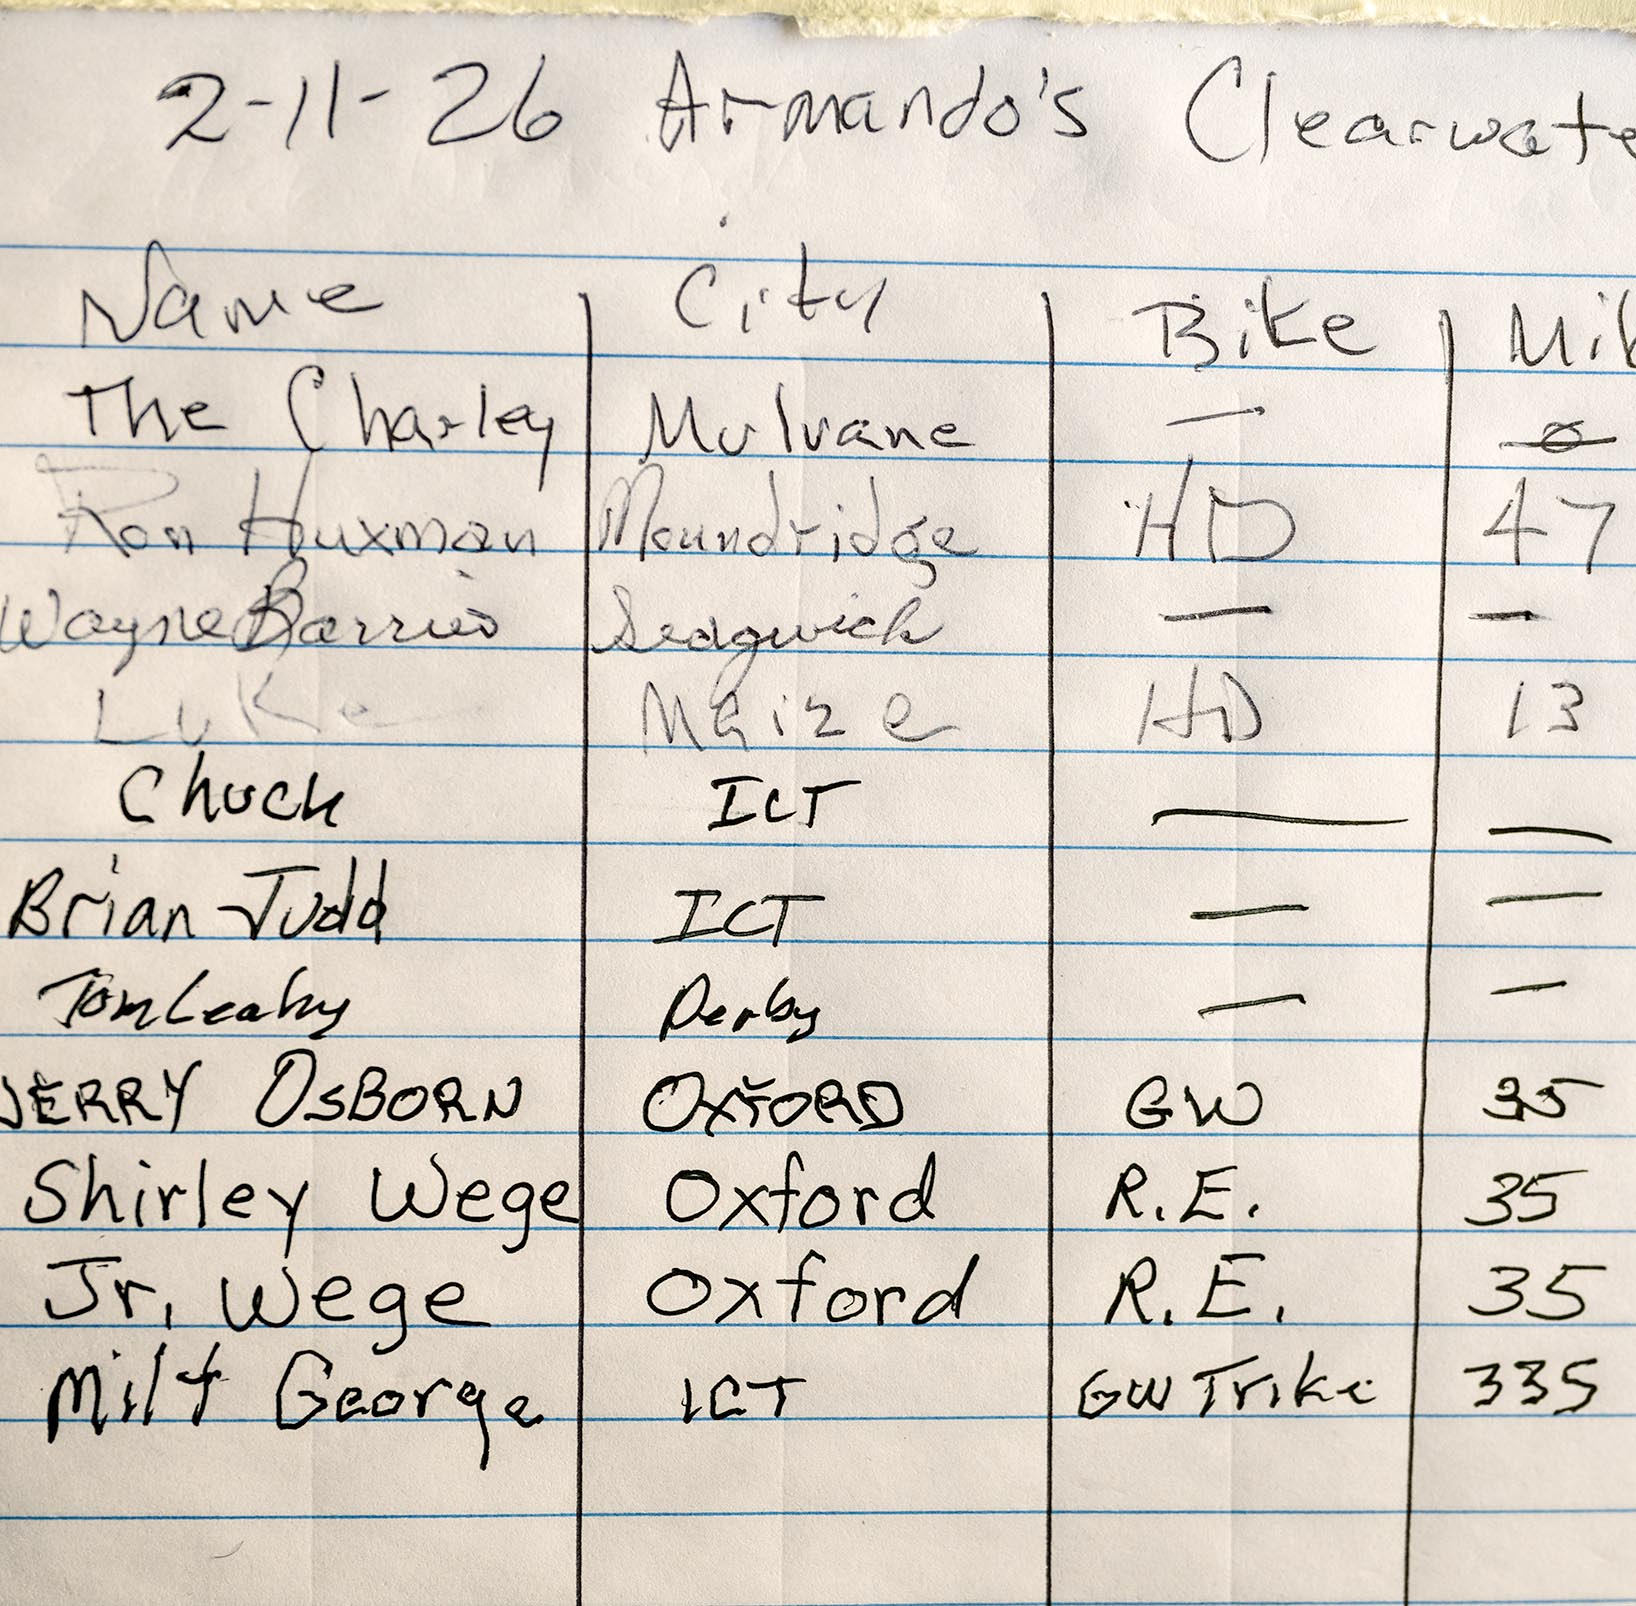 2-11-26 Armando's Clearwate
Name City Bike Mil
The Charley Mulvane — ∅
Ron Huxman Moundridge HD 47
Wayne Barrio Sedgwick — —
Luke Maize HD 13
Chuck ICT — —
Brian Judd ICT — —
Tom Leahy Derby — —
JERRY OSBORN OXFORD GW 35
Shirley Wege Oxford R.E. 35
Jr. Wege Oxford R.E. 35
Milt George ICT GW Trike 335